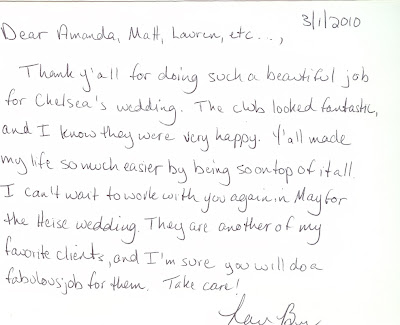 3/1/2010
Dear Amanda, Matt, Lauren, etc...,
Thank y'all for doing such a beautiful job
for Chelsea's wedding. The club looked fantastic,
and I know they were very happy. Y'all made
my life so much easier by being so on top of it all.
I can't wait to work with you again in May for
the Heise wedding. They are another of my
favorite clients, and I'm sure you will do a
fabulous job for them. Take care!